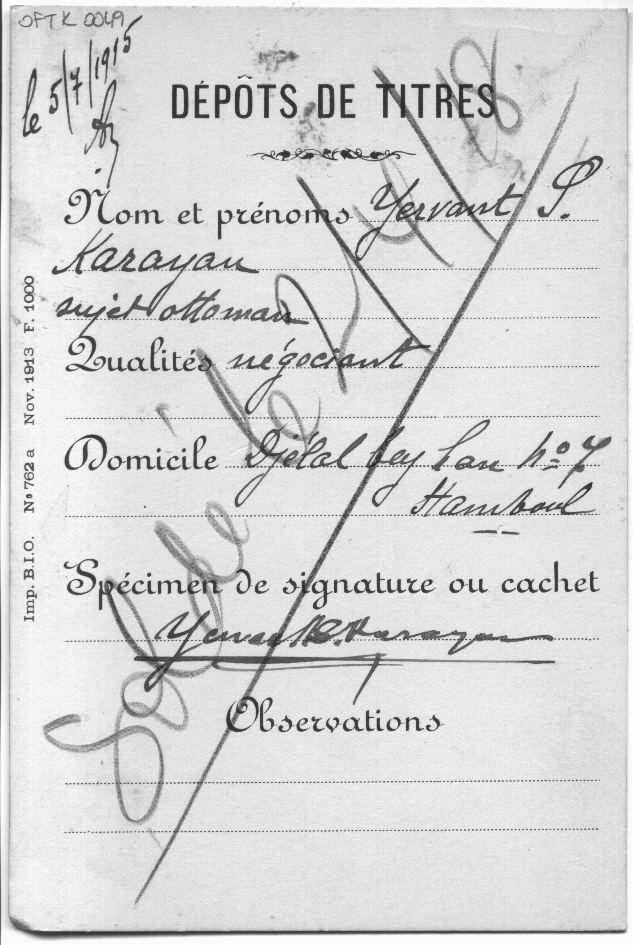 OFTK 0049
le 5/7/1915
DÉPÔTS DE TITRES
Nom et prénoms Yervant P.
Karayan
sujet ottoman
Qualités négociant
Domicile Djélal bey han No 7
Stamboul
Spécimen de signature ou cachet
Yervant P. Karayan
Observations
Soldé le 2/4/18
Imp. B.I.O. No 762 a Nov. 1913 F. 1000